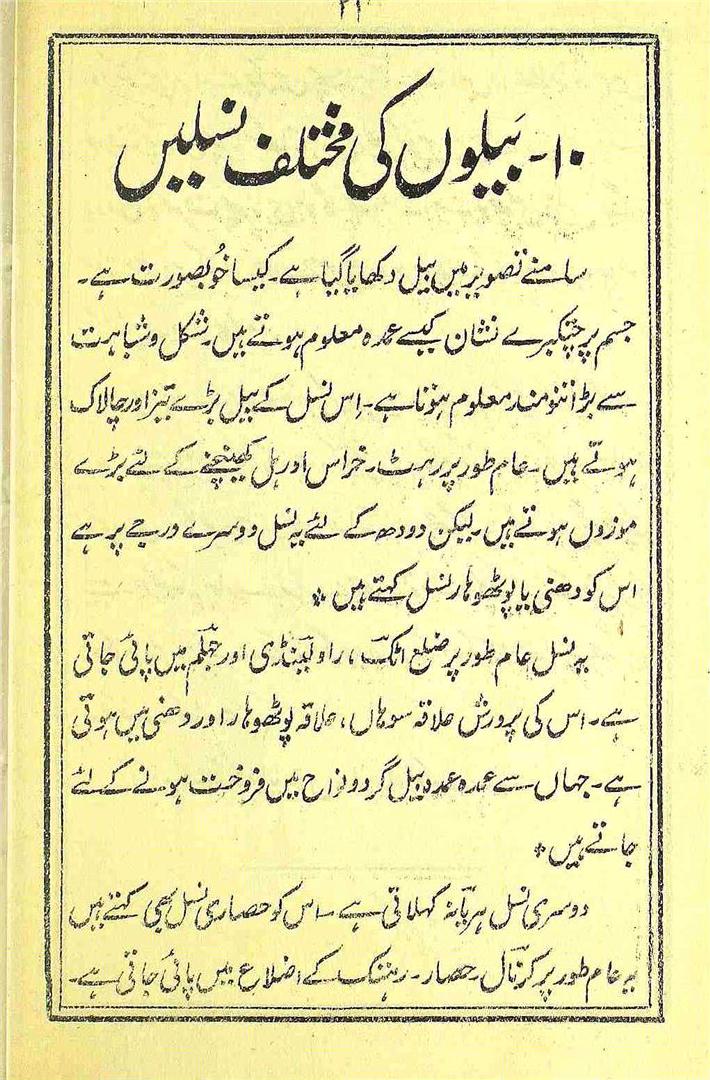 ۱۰۔ بَیلوں کی مختلف نسلیں
سامنے تصویر میں بیل دکھایا گیا ہے۔ کیسا خُوبصورت ہے۔
جسم پر چتکبرے نشان کیسے عمدہ معلوم ہوتے ہیں۔ شکل و شباہت
سے بڑا تنومند معلوم ہوتا ہے۔ اِس نسل کے بیل بڑے تیز اور چالاک
ہوتے ہیں۔ عام طور پر رہٹ۔ خراس اور ہل کھینچنے کے لئے بڑے
موزوں ہوتے ہیں۔ لیکن دودھ کے لئے یہ نسل دوسرے درجے پر ہے
اس کو دھنی یا پوٹھوہار نسل کہتے ہیں *
یہ نسل عام طور پر ضلع اٹک، راولپنڈی اور جہلم میں پائی جاتی
ہے۔ اس کی پرورش علاقہ سوہاں، علاقہ پوٹھوہار اور دھنی میں ہوتی
ہے۔ جہاں سے عمدہ عمدہ بیل گرد و نواح میں فروخت ہونے کے لئے
جاتے ہیں *
دوسری نسل ہریانہ کہلاتی ہے۔ اس کو حصاری نسل بھی کہتے ہیں
یہ عام طور پر کرنال۔ حصار۔ رہتک کے اضلاع میں پائی جاتی ہے۔